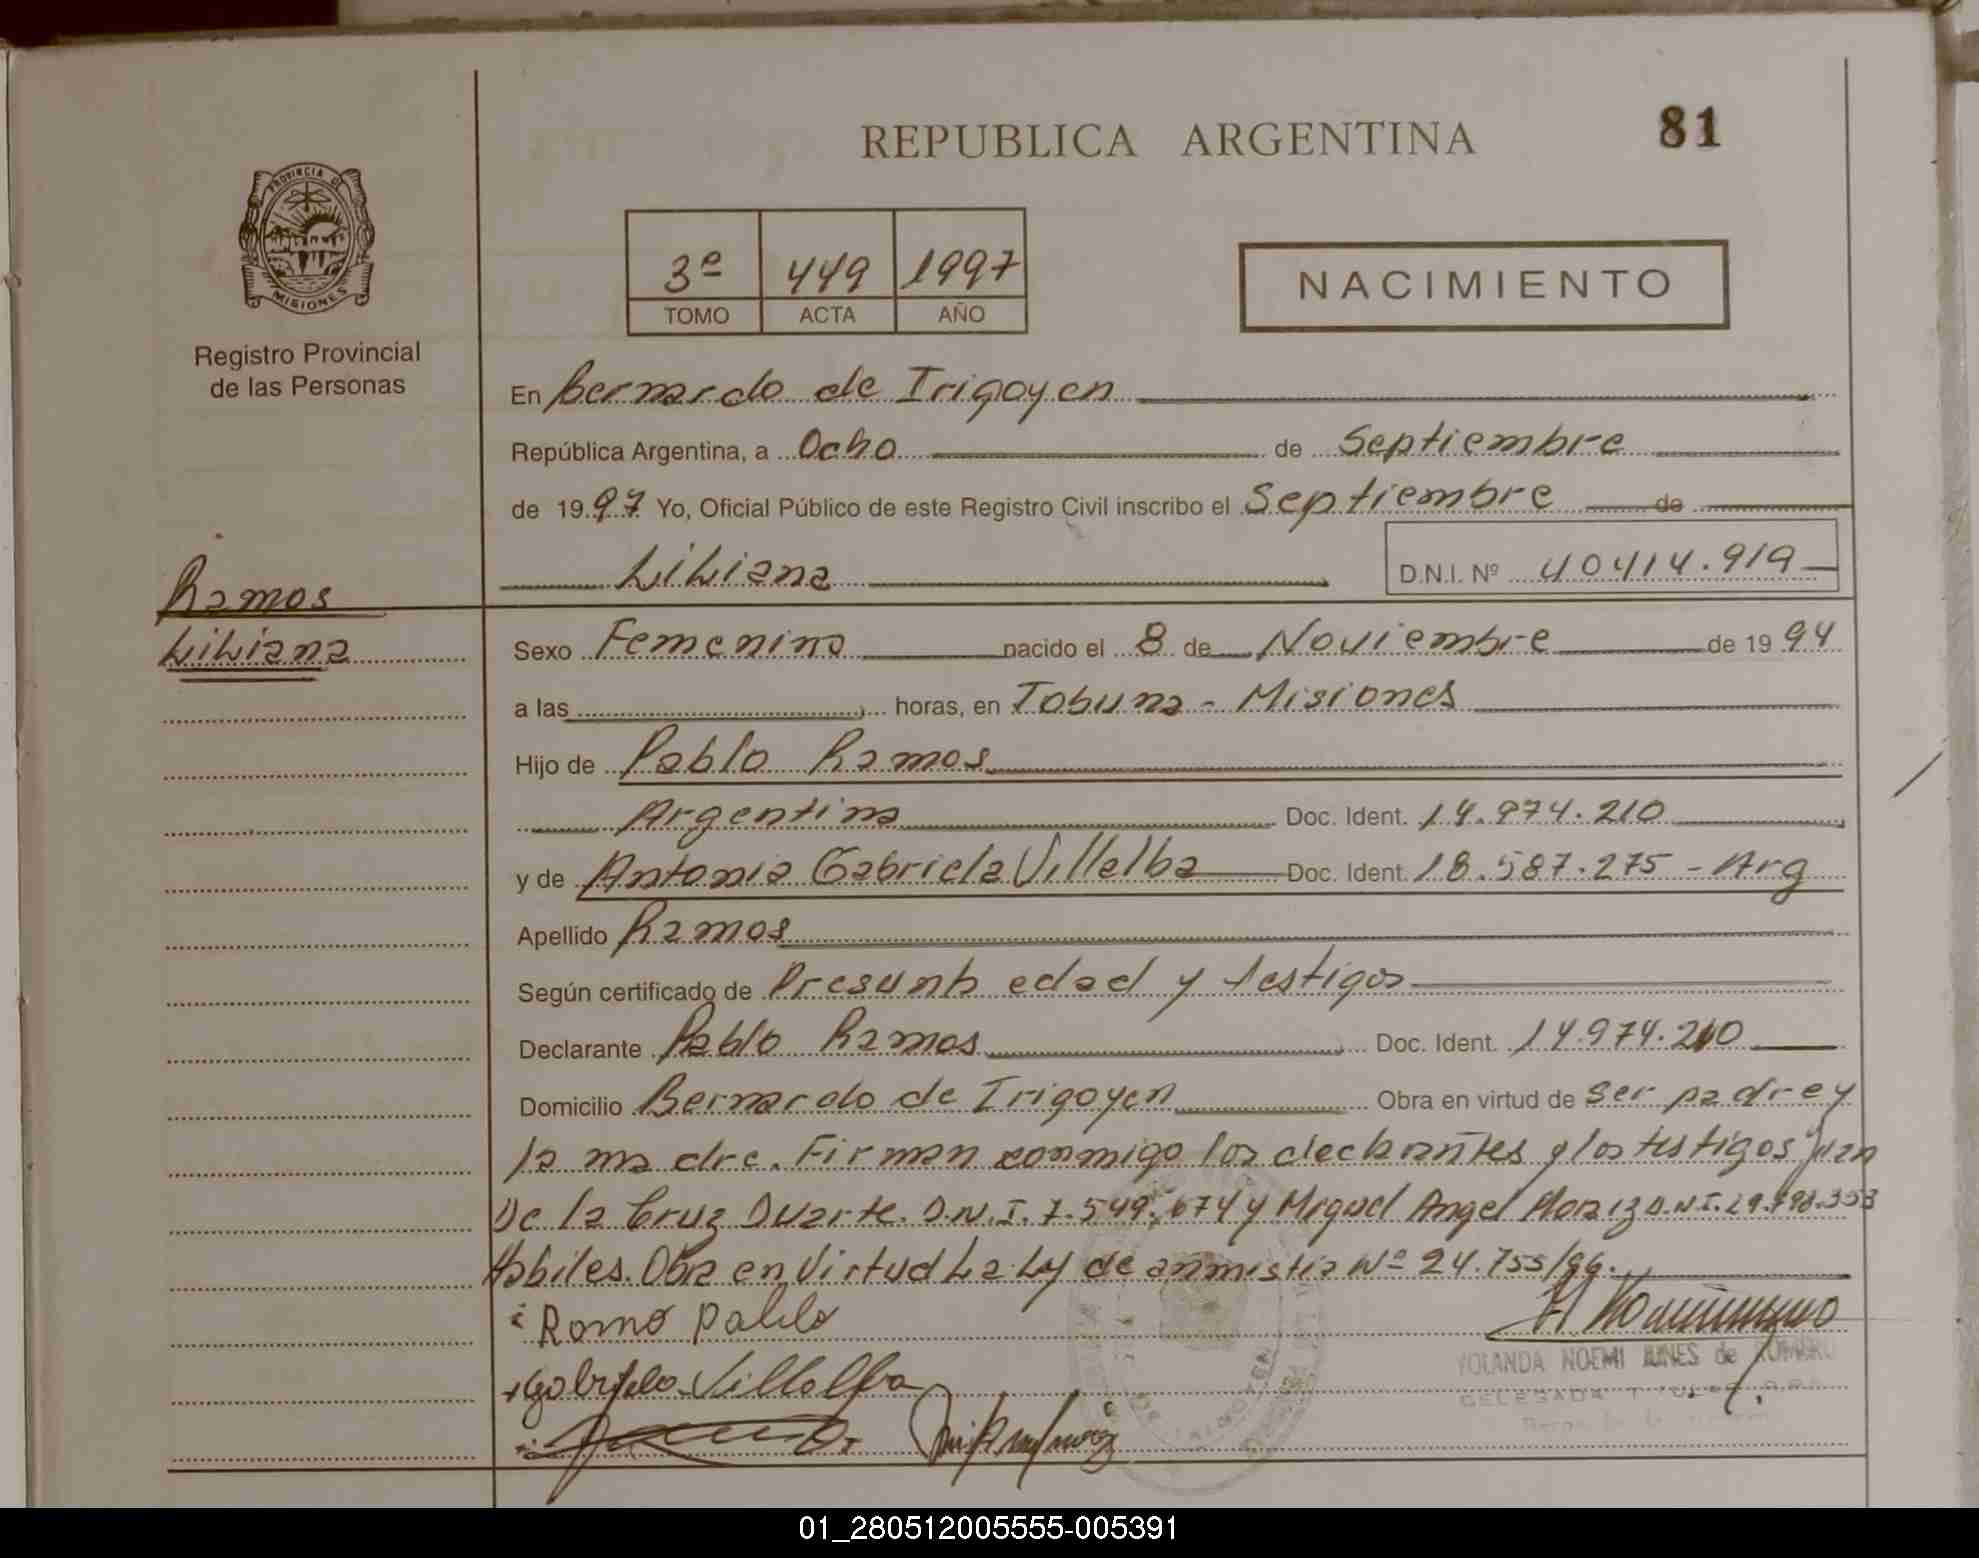 REPUBLICA ARGENTINA
81
PROVINCIA DE
MISIONES
Registro Provincial
de las Personas
3º 449 1997
TOMO ACTA AÑO
NACIMIENTO
En Bernardo de Irigoyen
República Argentina, a Ocho de Septiembre
de 1997 Yo, Oficial Público de este Registro Civil inscribo el Septiembre de
Liliana
D.N.I. Nº 40414.919
Ramos
Liliana
Sexo Femenino nacido el 8 de Noviembre de 1994
a las horas, en Tobuna - Misiones
Hijo de Pablo Ramos
Argentino Doc. Ident. 14.974.210
y de Antonia Gabriela Villalba Doc. Ident. 18.587.275 - Arg
Apellido Ramos
Según certificado de Presunta edad y testigos
Declarante Pablo Ramos Doc. Ident. 14.974.210
Domicilio Bernardo de Irigoyen Obra en virtud de ser padre y
la madre. Firman conmigo los declarantes y los testigos Juan
De la Cruz Duarte. D.N.I. 7.549.674 y Miguel Angel D.N.I. 29.798.353
Habiles. Obra en Virtud La Ley de anmistia Nº 24.755/96.
Ramo Pablo
Gabriela Villalba
YOLANDA NOEMI de
DELEGADA TITULAR
01_280512005555-005391